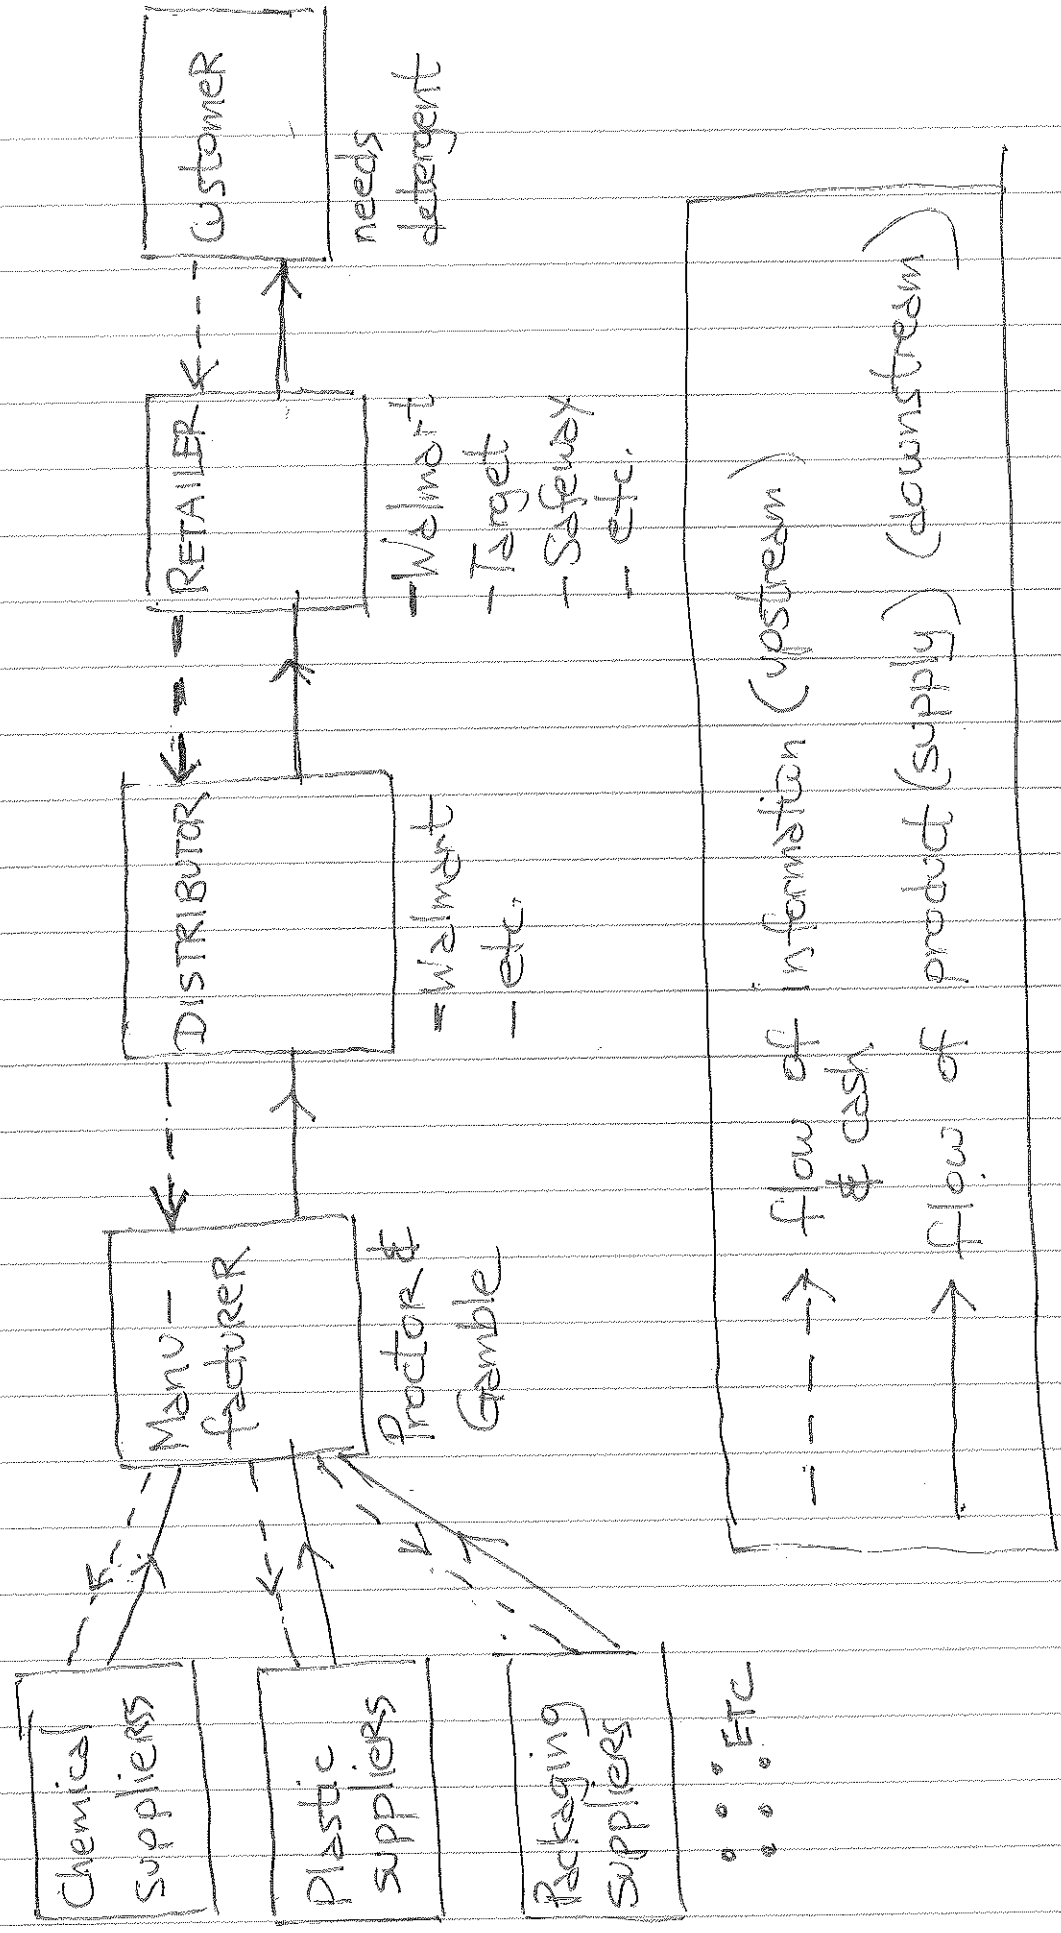 Chemical
suppliers
Plastic
suppliers
Packaging
suppliers
ETC
Manu-
facturer
Proctor &
Gamble
DISTRIBUTOR
- Walmart
- etc.
RETAILER
- Walmart
- Target
- Safeway
- etc.
Customer
needs
detergent
flow of information (upstream)
& cash
flow of product (supply) (downstream)